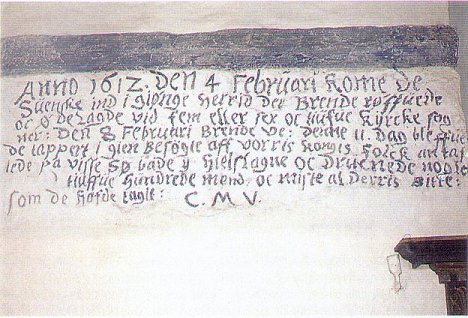 Anno 1612. Den 4 Februari Kome de
Suenske ind i giønge Herrid der Brende røffuede
oc ødelagde vid fem eller sex oc tiufue Kyrcke sog
ner: Den 8 Februari Brende ve: denne 11. Dag bleffue
de tappert igien Besøgte aff vorris Kongis Folck
lede på visse Sø bade y hielslagne oc Druknede nogle
tiuffue Hundrede mend oc miste al Derris
som de hafde tagit: C.M.V.